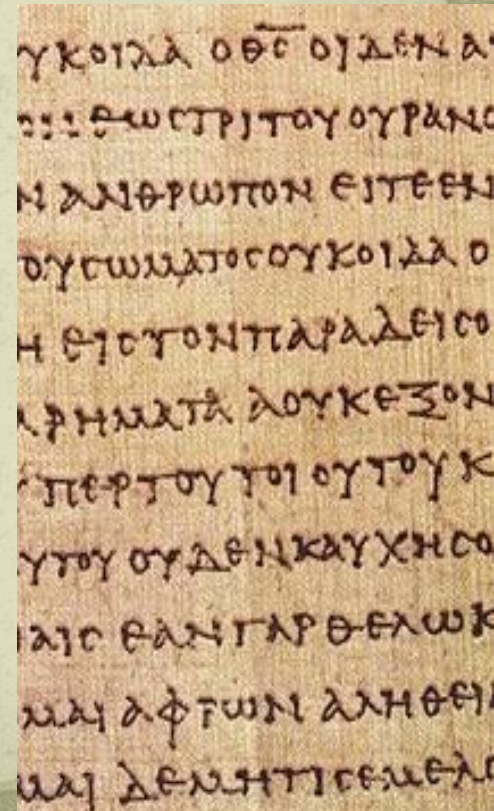 ΥΚΟΙΔΑ Ο Θ̅C̅ ΟΙΔΕΝ Α
ΕΩCΤΡΙΤΟΥ ΟΥΡΑΝΟ
Ν ΑΝΘΡΩΠΟΝ ΕΙΤΕΕΝ
ΟΥCΩΜΑΤΟCΟΥΚΟΙΔΑ Ο
Η ΕΙCΤΟΝΠΑΡΑΔΕΙCΟ
ΑΡΗΜΑΤΑ ΑΟΥΚΕΞΟΝ
ΥΠΕΡΤΟΥ ΤΟΙΟΥΤΟΥ Κ
ΥΤΟΥ ΟΥΔΕΝΚΑΥΧΗCΟ
ΑΙC ΕΑΝΓΑΡ ΘΕΛΩΚ
ΜΑΙ ΑΦΡΩΝ ΑΛΗΘΕΙ
ΜΑΙ ΔΕΜΗΤΙCΕΜΕΛΟ